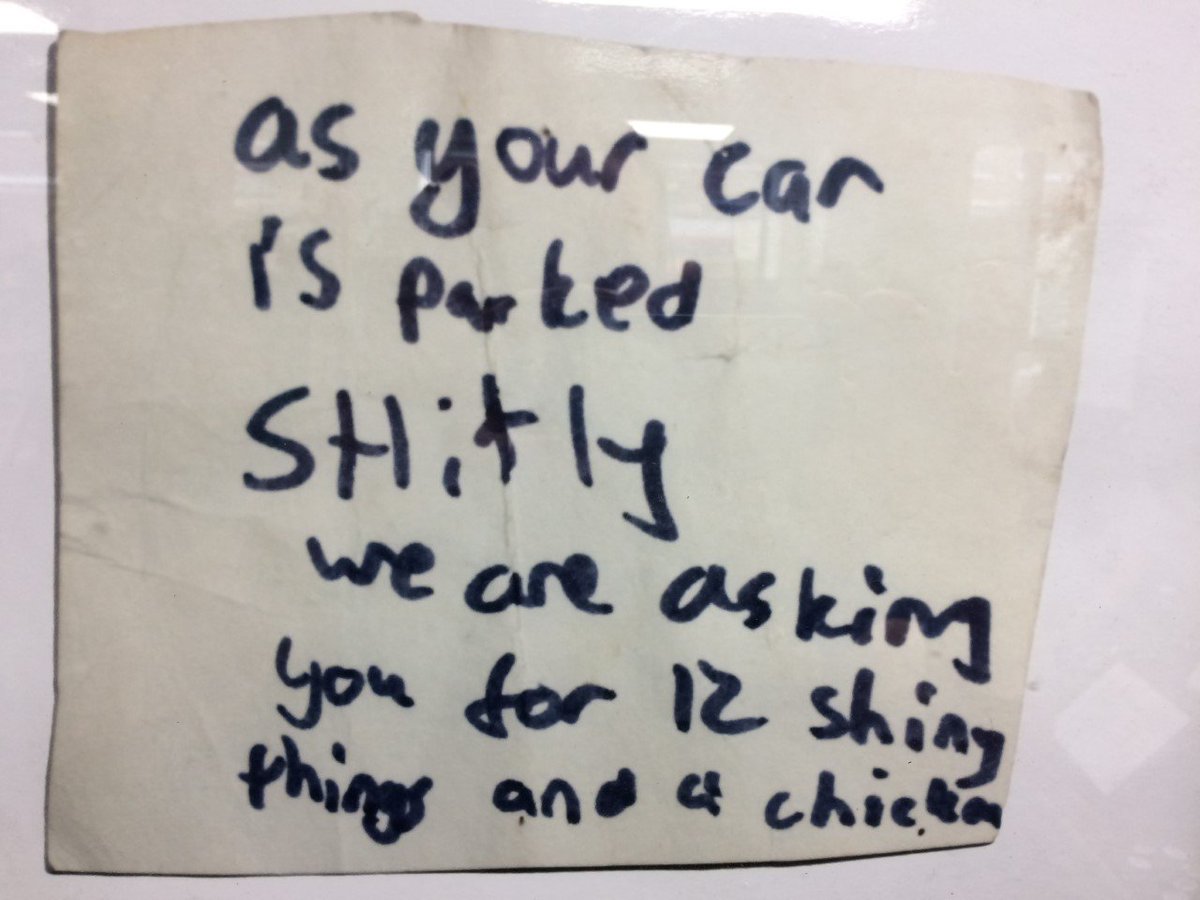 as your car
is parked
SHitly
we are asking
you for 12 shiny
things and a chicken